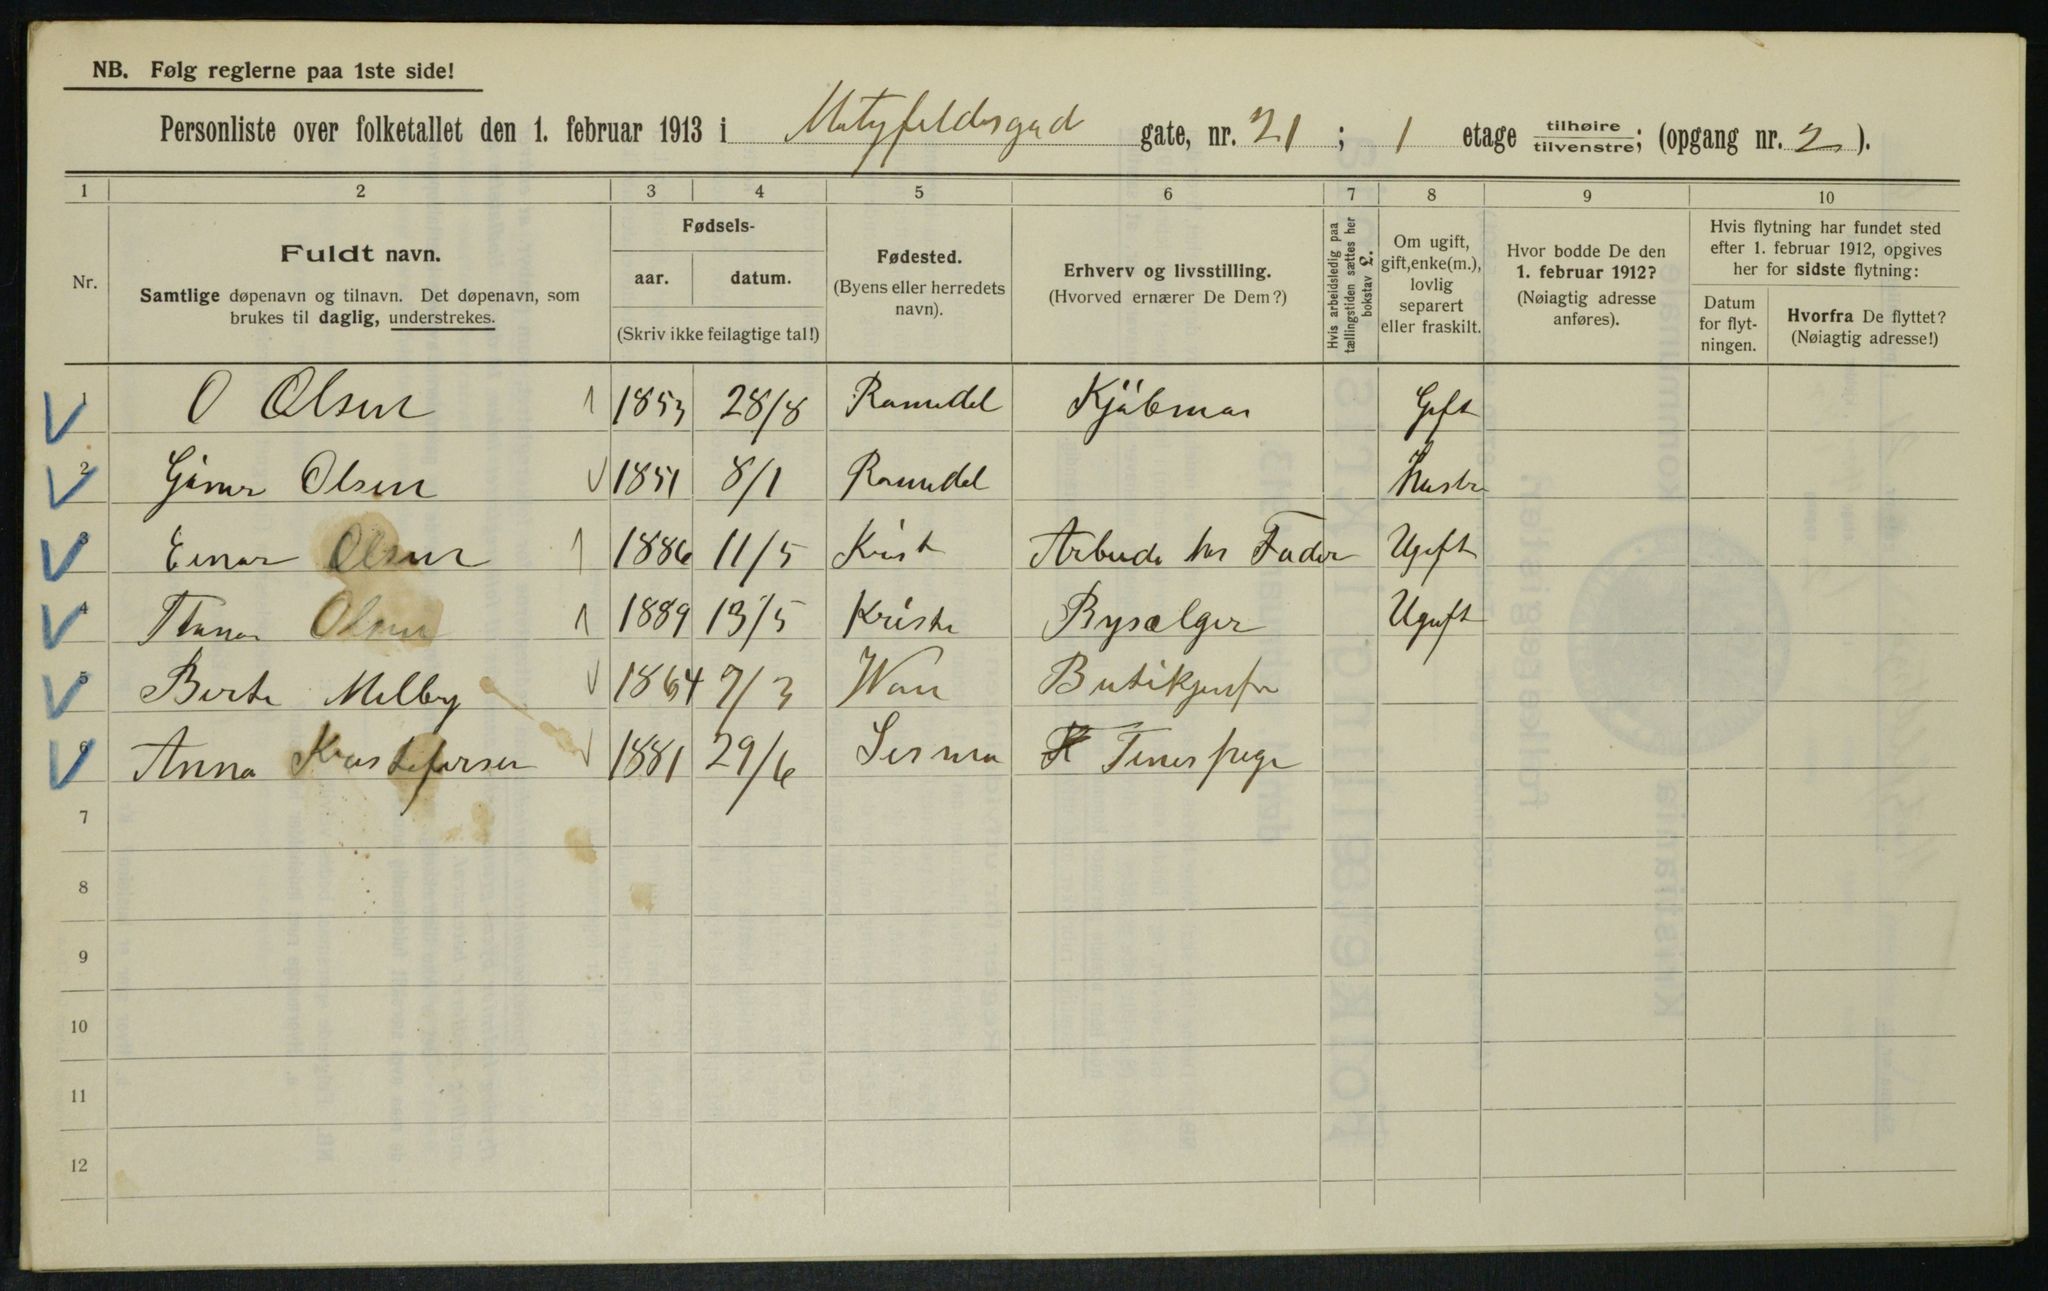 NB. Følg reglerne paa 1ste side!
Personliste over folketallet den 1. februar 1913 i gate, nr. 21 ; 1 etage tilhøire/tilvenstre; (opgang nr. 2 ).
1 2 3 4 5 6 7 8 9 10
Nr.
Fuldt navn.
Samtlige døpenavn og tilnavn. Det døpenavn, som
brukes til daglig, understrekes.
Fødsels-
aar. datum.
(Skriv ikke feilagtige tal!)
Fødested.
(Byens eller herredets
navn).
Erhverv og livsstilling.
(Hvorved ernærer De Dem?)
Hvis arbeidsledig paa
tællingstiden sættes her
bokstav L.
Om ugift,
gift, enke(m.),
lovlig
separert
eller fraskilt.
Hvor bodde De den
1. februar 1912?
(Nøiagtig adresse
anføres).
Hvis flytning har fundet sted
efter 1. februar 1912, opgives
her for sidste flytning:
Datum
for flyt-
ningen.
Hvorfra De flyttet?
(Nøiagtig adresse!)
1 O Olsen 1853 28/8 Kjöbman Gift
2 Olsen 1851 8/1 Hustru
3 Einar Olsen 1886 11/5 Krist Arbeide hos Fader Ugift
4 Olsen 1889 13/5 Kristia Ugift
5 Berte Melby 1864 7/3 Butikjomfru
6 Anna Kristofersen 1881 29/6 Tienespige
7
8
9
10
11
12